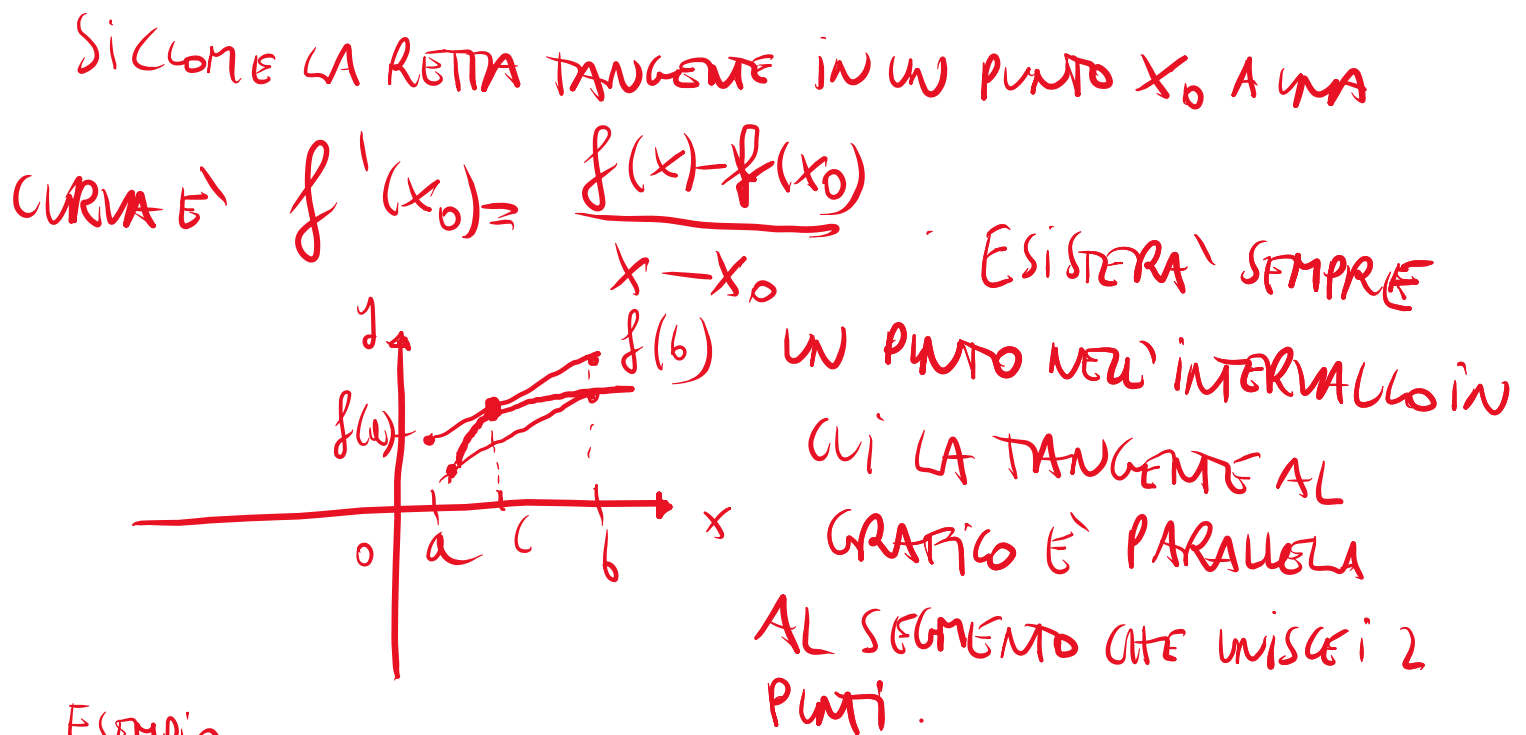 SICCOME LA RETTA TANGENTE IN UN PUNTO X₀ A UNA
CURVA E' f'(x₀) = (f(x)-f(x₀))/(x-x₀)
ESISTERA' SEMPRE
UN PUNTO NELL'INTERVALLO IN
CUI LA TANGENTE AL
GRAFICO E' PARALLELA
AL SEGMENTO CHE UNISCE I 2
PUNTI.
y
f(b)
f(a)
0 a c b x
ESEMPIO